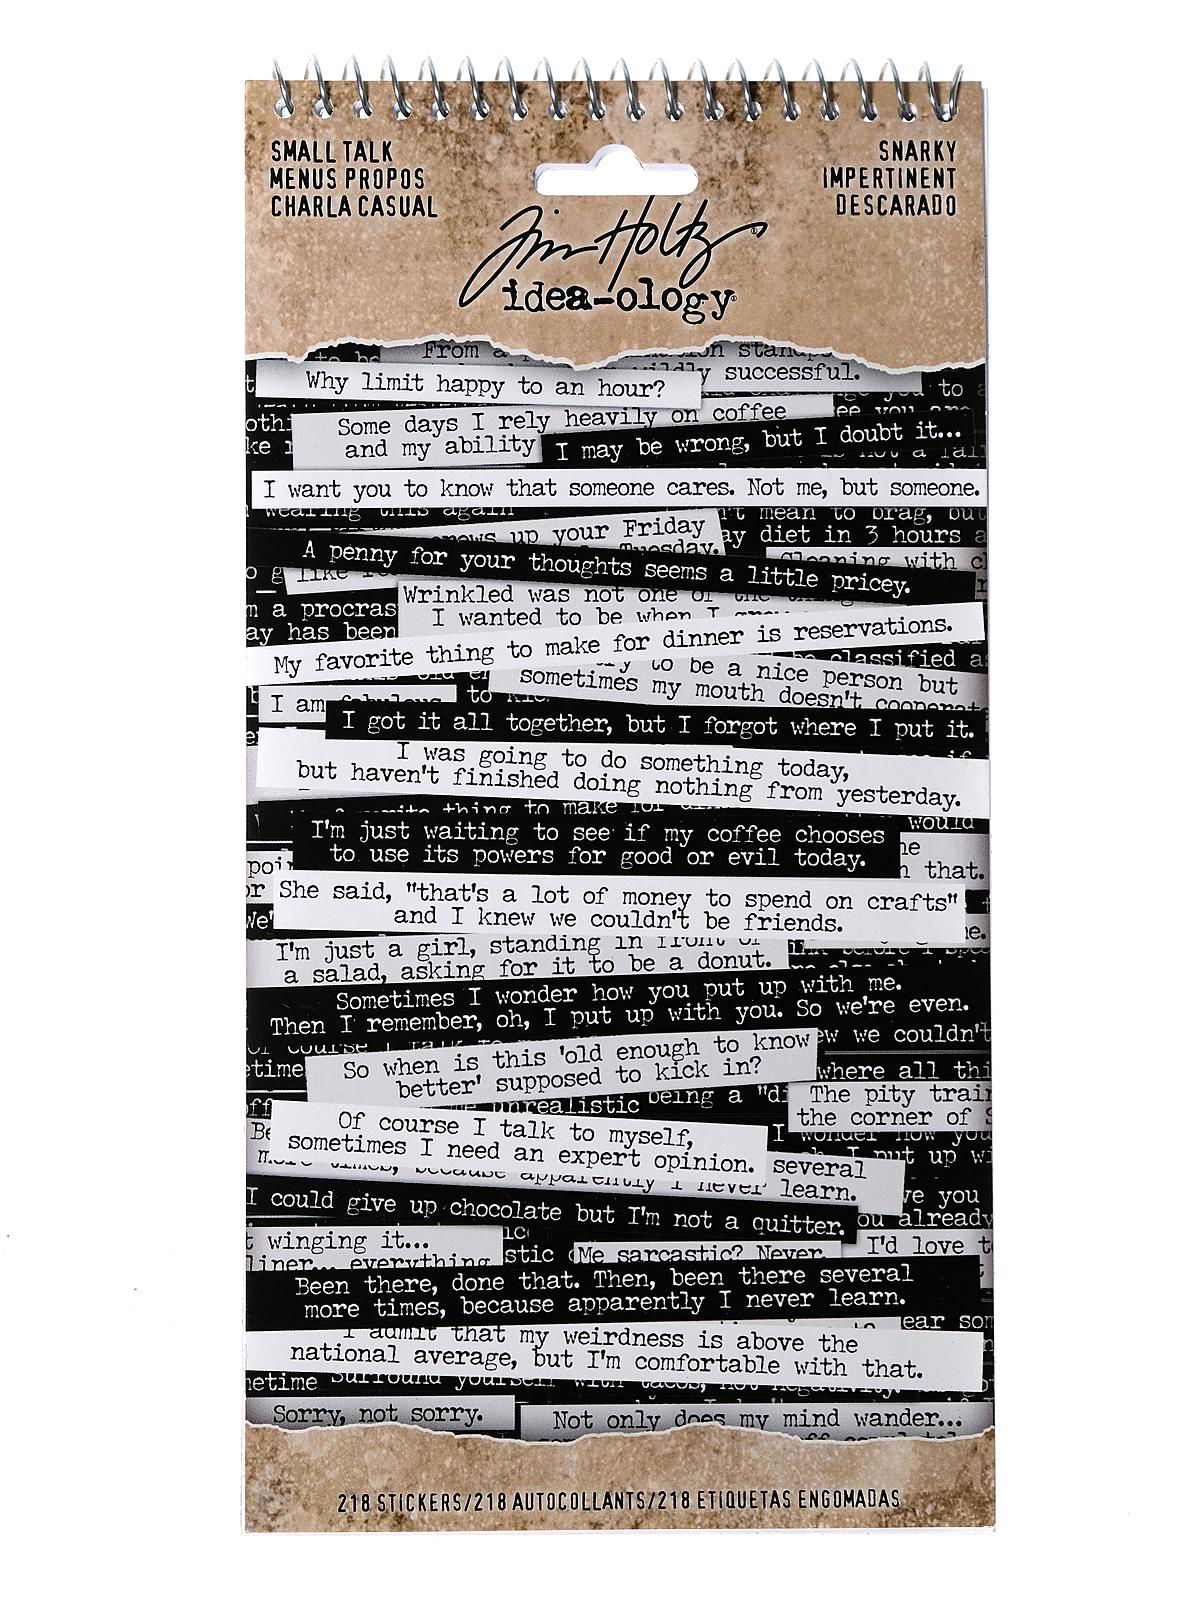 SMALL TALK
MENUS PROPOS
CHARLA CASUAL
SNARKY
IMPERTINENT
DESCARADO
Tim Holtz
idea-ology
to be
From a
successful.
Why limit happy to an hour?
you to
Some days I rely heavily on coffee
and my ability
I may be wrong, but I doubt it...
I want you to know that someone cares. Not me, but someone.
wearing this again
mean to brag, but
up your Friday
Tuesday.
diet in 3 hours
A penny for your thoughts seems a little pricey.
with
Wrinkled was not one of the
I wanted to be when I
a procras
has been
My favorite thing to make for dinner is reservations.
classified
to be a nice person but
sometimes my mouth doesn't
I am fabulous
to
I got it all together, but I forgot where I put it.
I was going to do something today,
but haven't finished doing nothing from yesterday.
thing to make for
would
I'm just waiting to see if my coffee chooses
to use its powers for good or evil today.
that.
or
She said, "that's a lot of money to spend on crafts"
and I knew we couldn't be friends.
I'm just a girl, standing in front of
a salad, asking for it to be a donut.
before I
Sometimes I wonder how you put up with me.
Then I remember, oh, I put up with you. So we're even.
we couldn't
So when is this 'old enough to know
better' supposed to kick in?
where all
unrealistic
being a
The pity
the corner of
Of course I talk to myself,
sometimes I need an expert opinion.
I wonder how you
I put up
several
more times, because apparently I never learn.
I could give up chocolate but I'm not a quitter.
you
already
winging it...
everything
Me sarcastic? Never.
I'd love
Been there, done that. Then, been there several
more times, because apparently I never learn.
I admit that my weirdness is above the
national average, but I'm comfortable with that.
surround yourself with tacos, not negativity.
Sorry, not sorry.
Not only does my mind wander...
218 STICKERS/218 AUTOCOLLANTS/218 ETIQUETAS ENGOMADAS